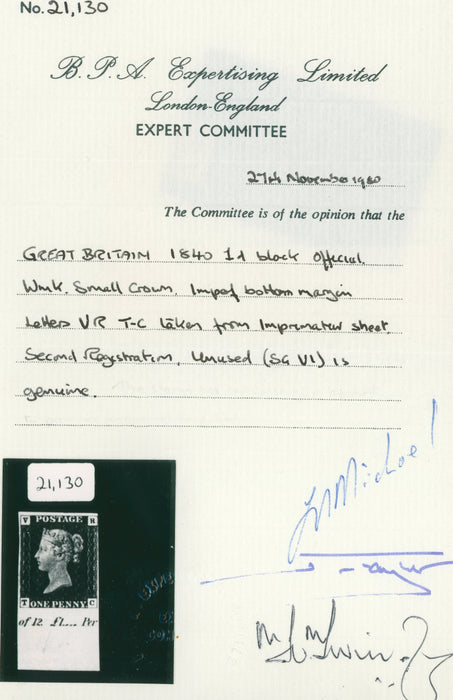 No. 21,130
B. P. A. Expertising Limited
London-England
EXPERT COMMITTEE
27th November 1980
The Committee is of the opinion that the
GREAT BRITAIN 1840 1d black Official
Wmk. Small Crown. Imperf bottom margin
Letters VR T-C taken from Imprimatur sheet.
Second Registration, Unused (SG V1) is
genuine.
21,130
V POSTAGE R
T ONE PENNY C
of 12. £1... Per